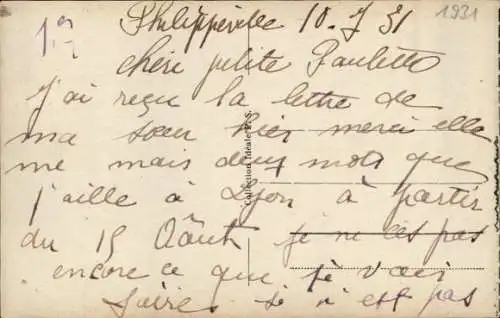 Philippeville 10-7 31
1931
1er
chère petite Paulette
J'ai reçu la lettre de
ma sœur hier merci elle
me mais deux mots que
j'aille à Lyon à partir
du 15 Aôaut je ne les pas
encore ce que je vais
faire si n'est pas
Collection Idéale P. S.